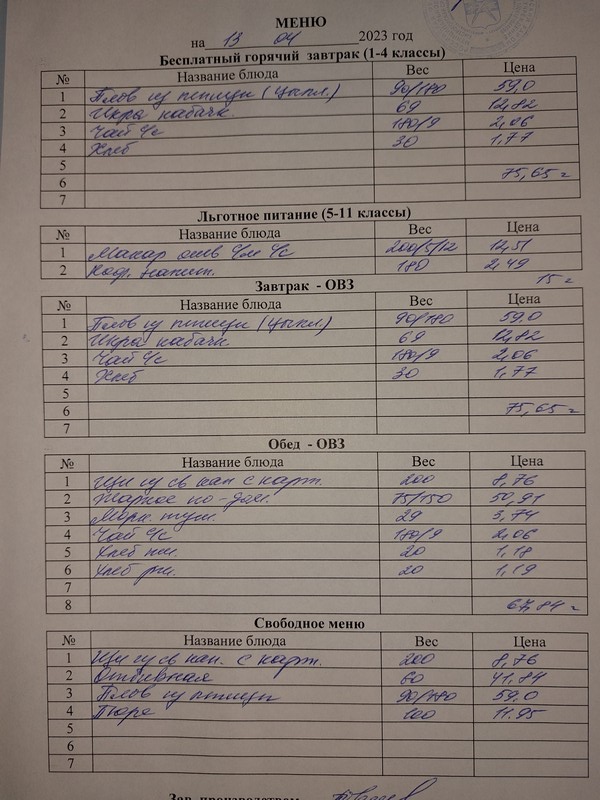 МЕНЮ
на 13 04 2023 год
Бесплатный горячий завтрак (1-4 классы)
№ Название блюда Вес Цена
1 Плов из птицы (цыпл.) 90/180 59,0
2 Икра кабачк. 69 12,82
3 Чай ч/с 180/9 2,06
4 Хлеб 30 1,77
5
6 75,65 г
7
Льготное питание (5-11 классы)
№ Название блюда Вес Цена
1 Макар отв ч/м ч/с 200/5/12 12,51
2 Коф. напит. 180 2,49
15 г
Завтрак - ОВЗ
№ Название блюда Вес Цена
1 Плов из птицы (цыпл) 90/180 59,0
2 Икра кабачк 69 12,82
3 Чай ч/с 180/9 2,06
4 Хлеб 30 1,77
5
6 75,65 г
7
Обед - ОВЗ
№ Название блюда Вес Цена
1 Щи из св кап с карт. 200 8,76
2 Жаркое по-дом. 75/150 50,91
3 Морк. туш. 29 3,74
4 Чай ч/с 180/9 2,06
5 Хлеб пш. 20 1,18
6 Хлеб рж. 20 1,19
7
8 67,84 г
Свободное меню
№ Название блюда Вес Цена
1 Щи из св кап. с карт. 200 8,76
2 Отбивная 60 41,84
3 Плов из птицы 90/180 59,0
4 Пюре 100 11.95
5
6
7
Зав. производством